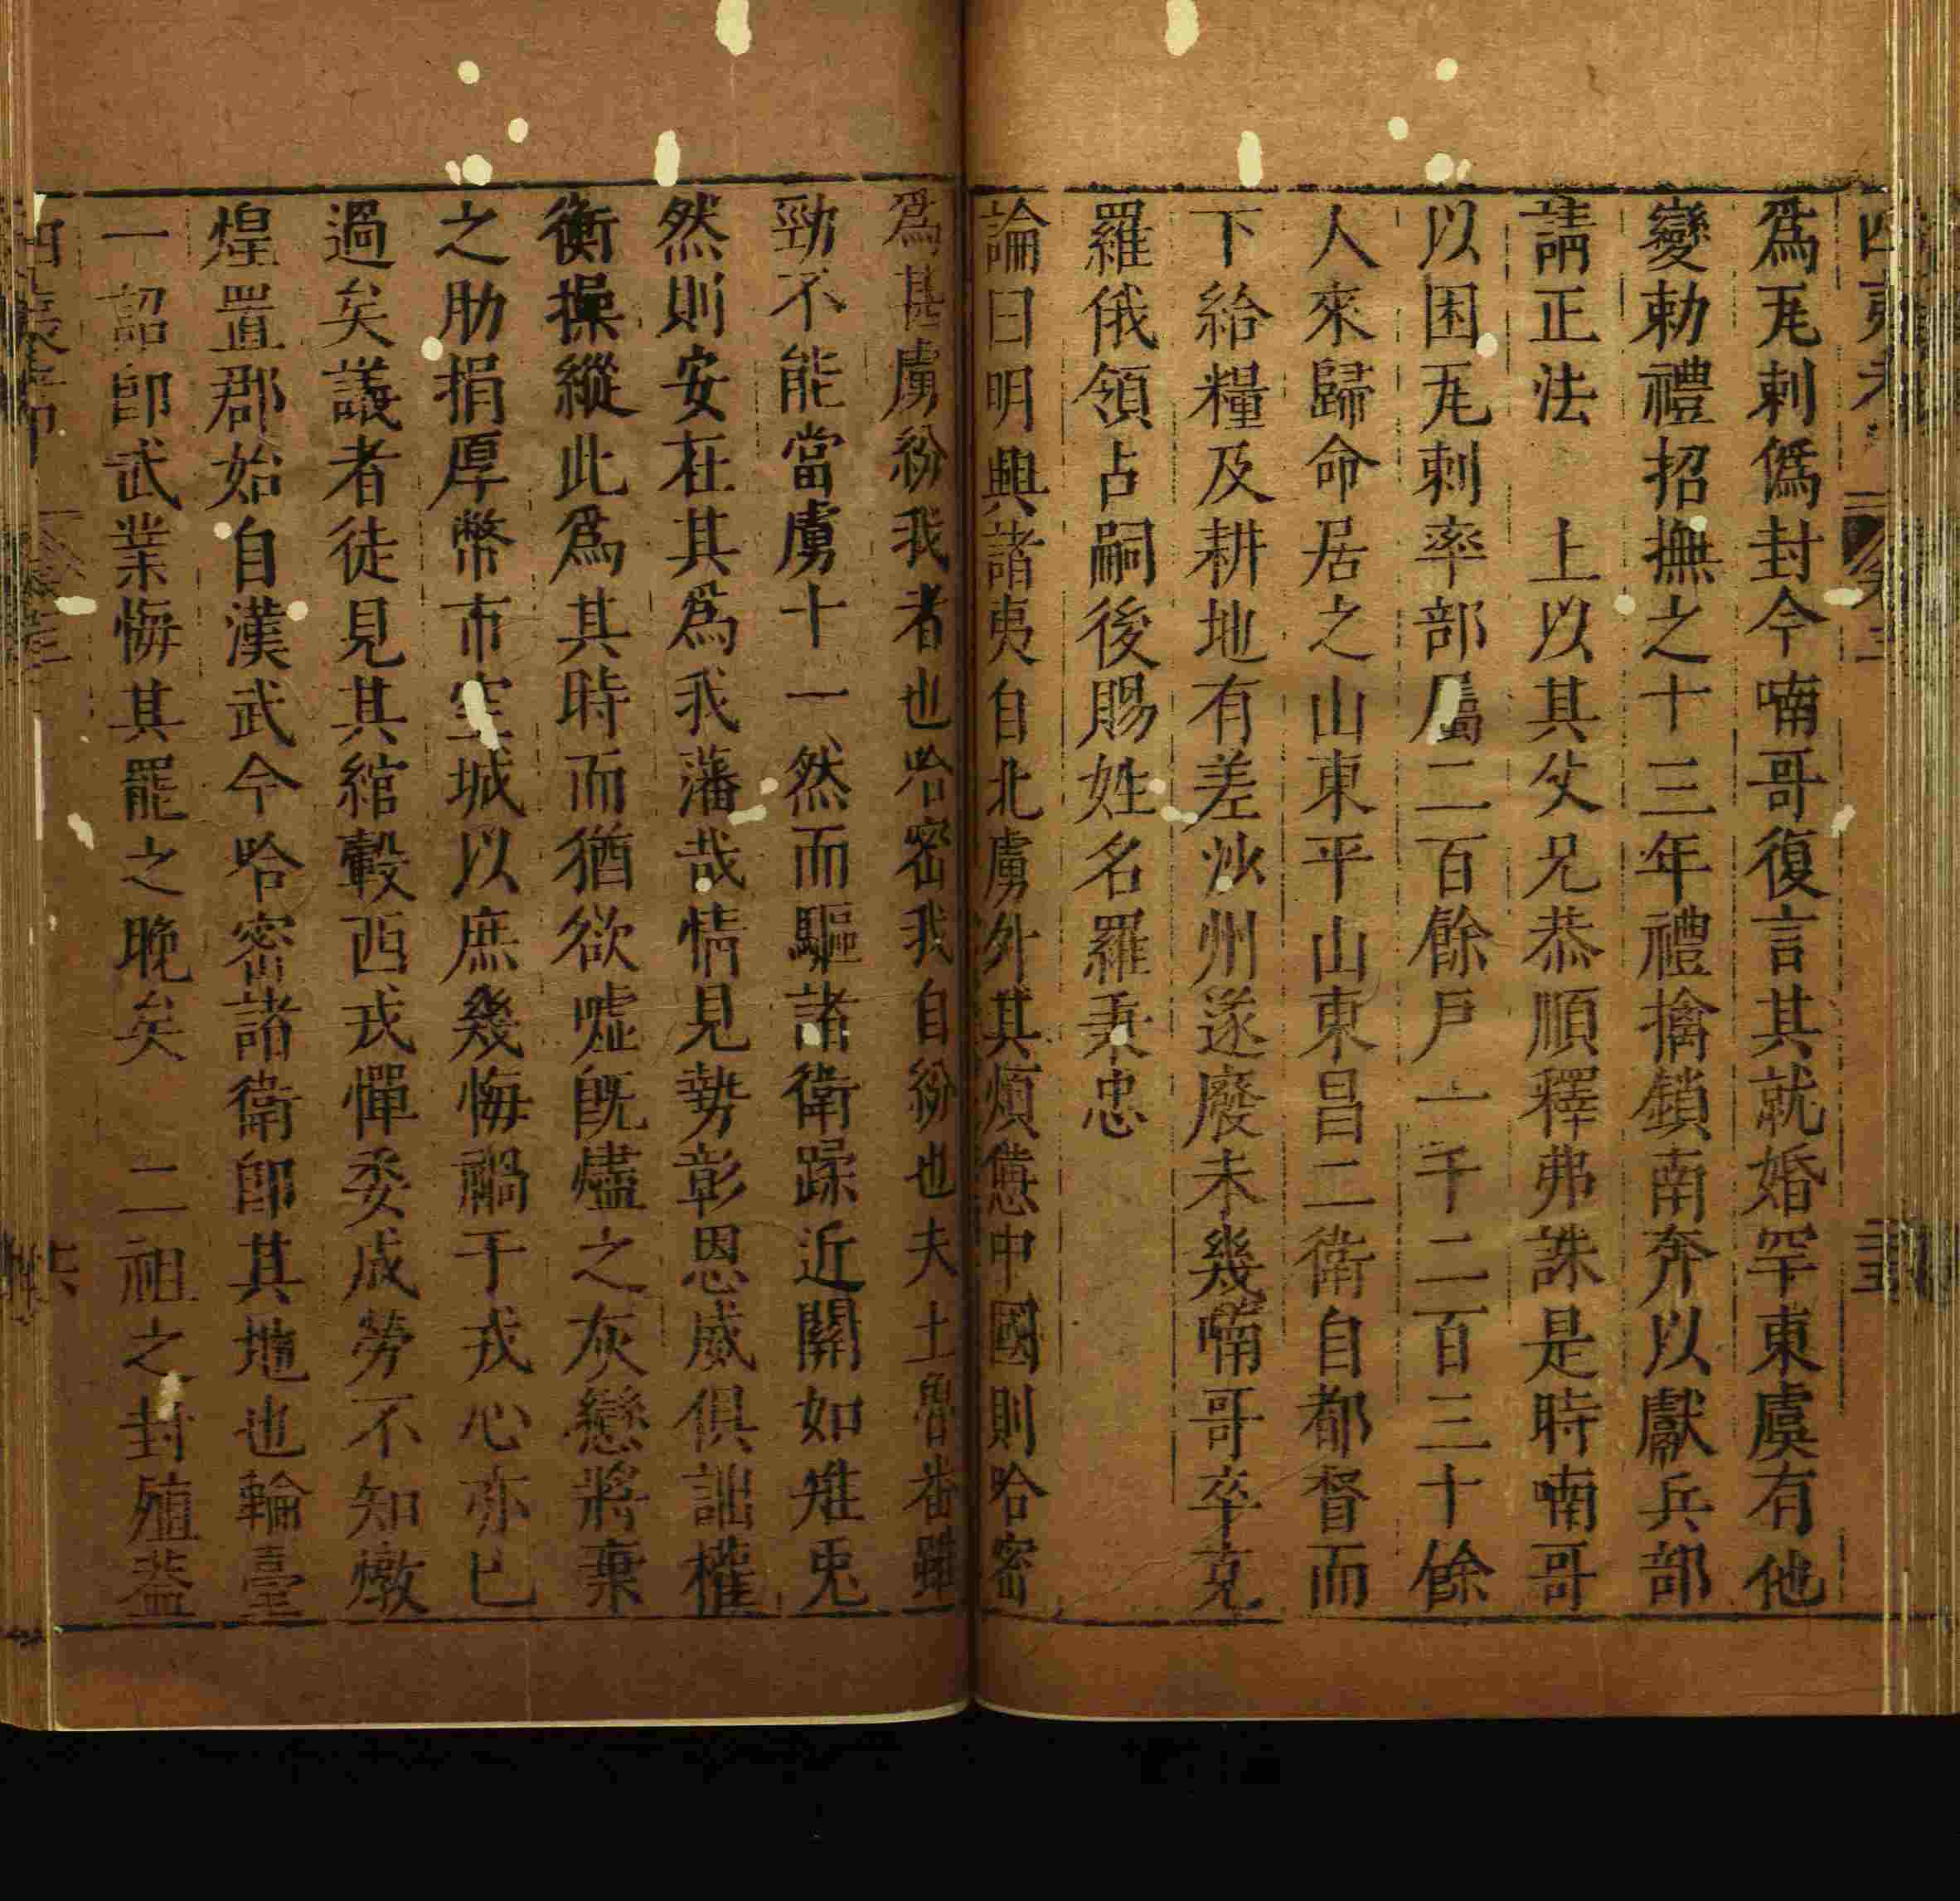 爲瓦剌僞封今喃哥復言其就婚罕東虞有他
變勅禮招撫之十三年禮擒鎖南奔以獻兵部
請正法 上以其父兄恭順釋弗誅是時喃哥
以困瓦剌率部屬二百餘戶一千二百三十餘
人來歸命居之山東平山東昌二衛自都督而
下給糧及耕地有差沙州遂廢未幾喃哥卒克
羅俄領占嗣後賜姓名羅秉忠
論曰明興諸夷自北虜外其煩憊中國則哈密
爲甚虜紛我者也哈密我自紛也夫土魯番雖
勁不能當虜十一然而驅諸衛蹂近關如雉兎
然則安在其爲我藩哉情見勢彰恩威俱詘權
衡操縱此爲其時而猶欲噓旣燼之灰戀將棄
之肋捐厚幣市空城以庶幾悔禍于戎心亦已
過矣議者徒見其綰轂西戎憚委成勞不知燉
煌置郡始自漢武今哈密諸衛卽其地也輪臺
一詔卽武業悔其罷之晚矣 二祖之封殖蓋